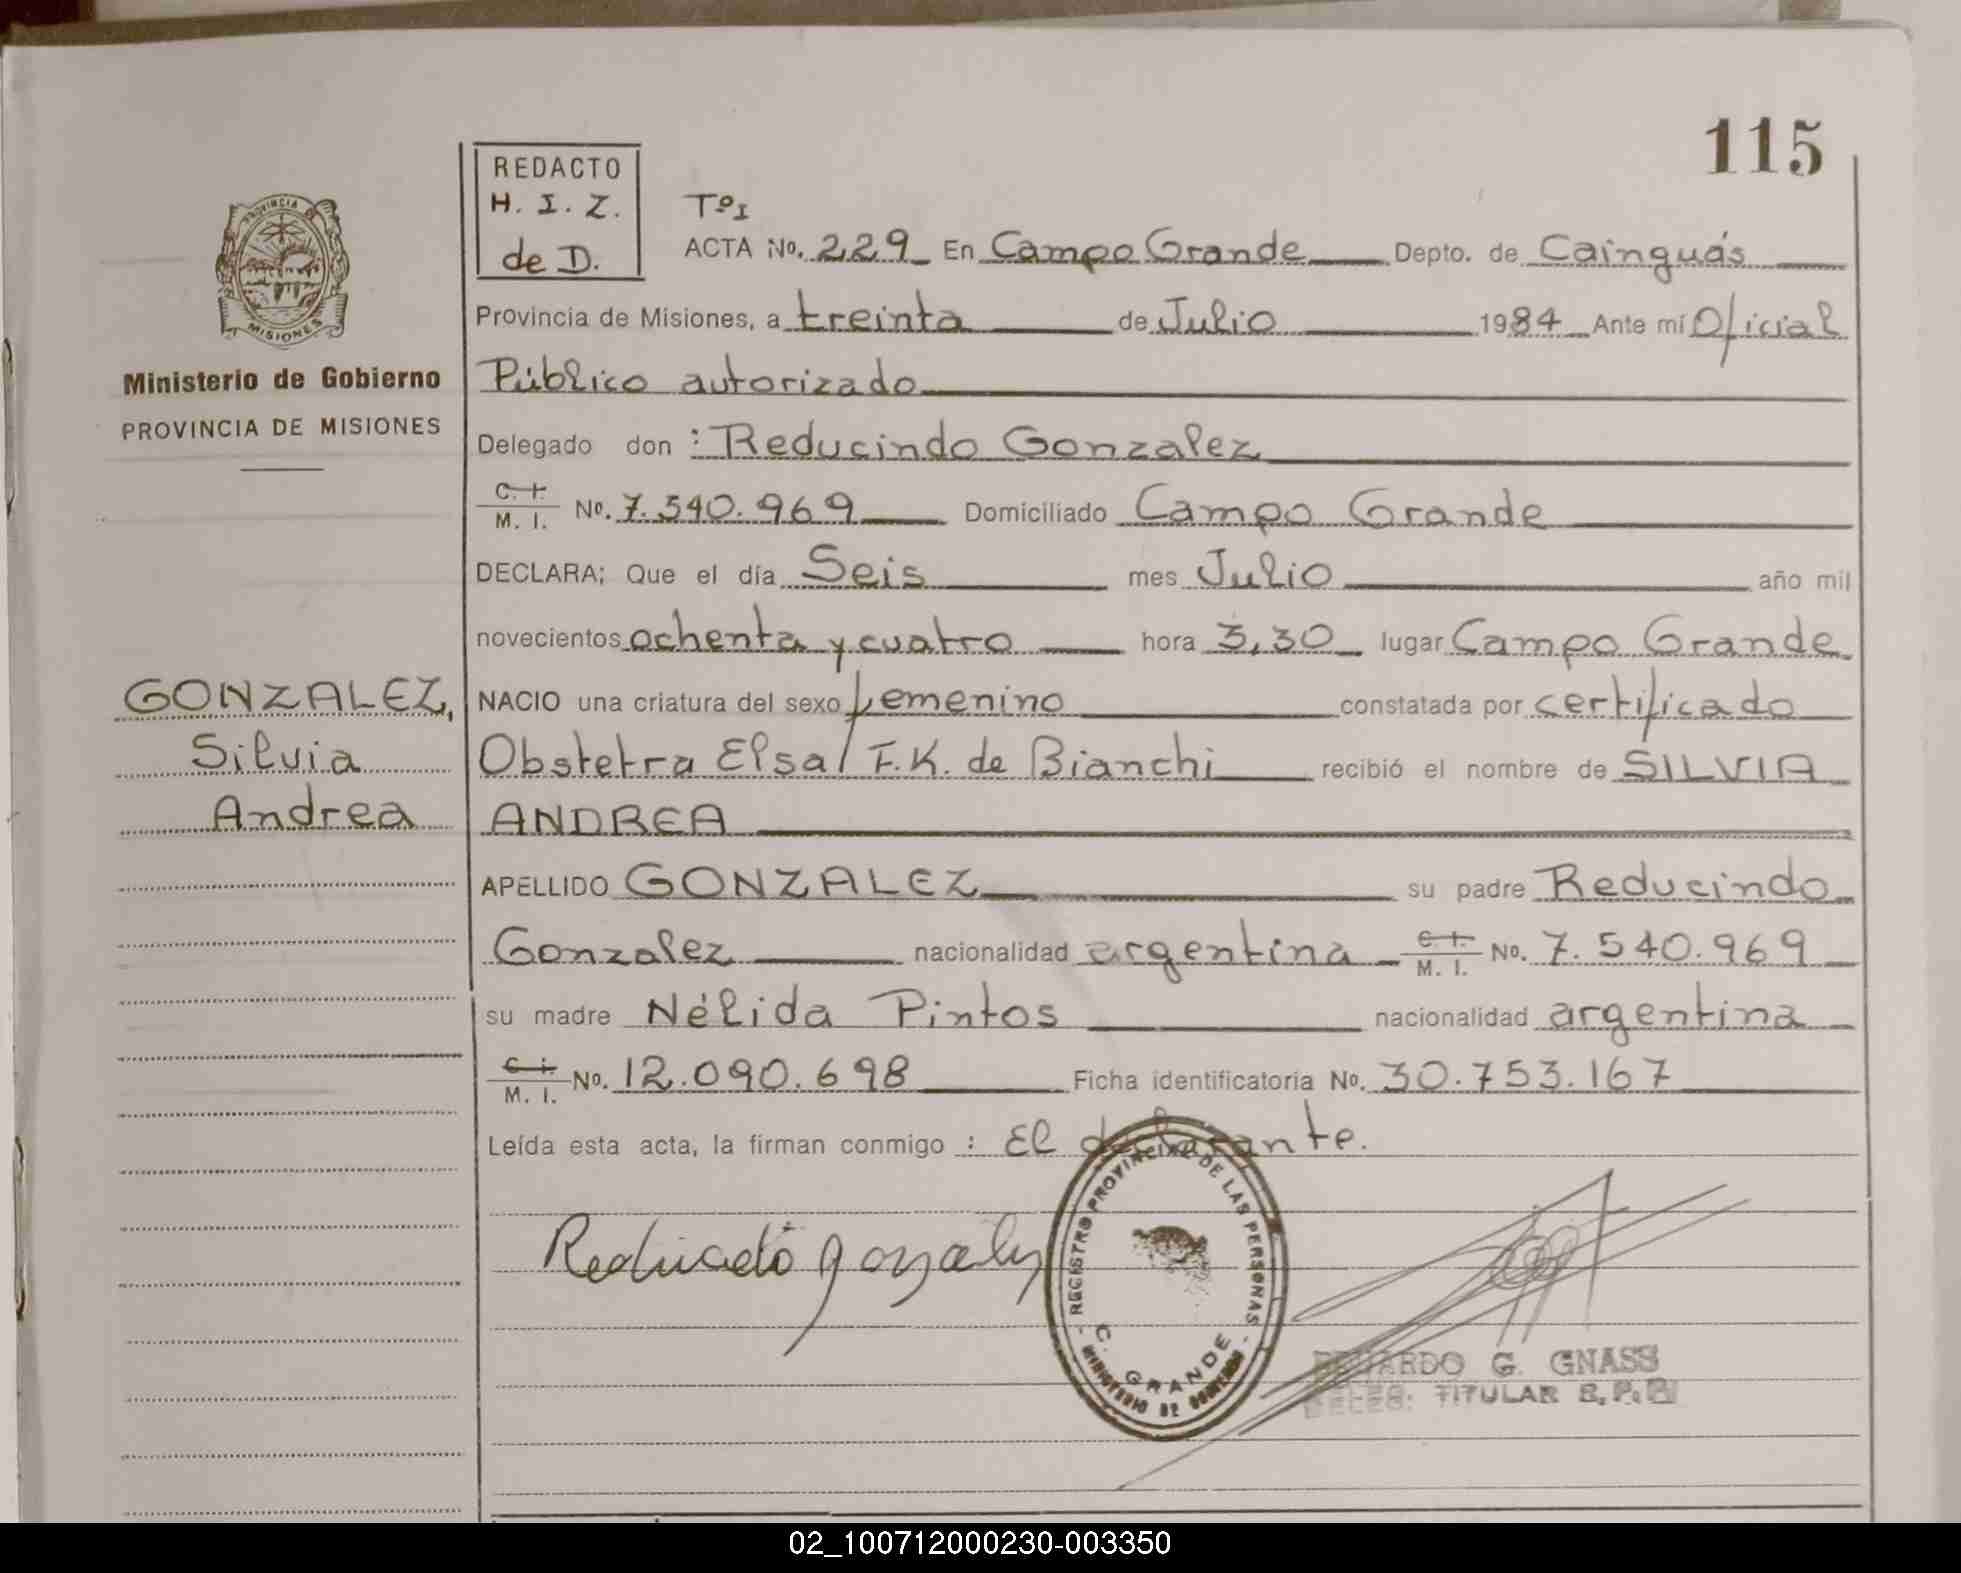 115
REDACTO
H. I. Z.
de D.
Tº I
ACTA No. 229 En Campo Grande Depto. de Cainguás
Provincia de Misiones, a treinta de Julio 1984 Ante mí Oficial
Público autorizado
Delegado don : Reducindo Gonzalez
C. I. M. I. No. 7.540.969 Domiciliado Campo Grande
DECLARA; Que el día Seis mes Julio año mil
novecientos ochenta y cuatro hora 3,30 lugar Campo Grande
NACIO una criatura del sexo femenino constatada por certificado
Obstetra Elsa F. K. de Bianchi recibió el nombre de SILVIA
ANDREA
APELLIDO GONZALEZ su padre Reducindo
Gonzalez nacionalidad argentina C. I. M. I. No. 7.540.969
su madre Nélida Pintos nacionalidad argentina
C. I. M. I. No. 12.090.698 Ficha identificatoria No. 30.753.167
Leída esta acta, la firman conmigo : El declarante.
PROVINCIA DE
MISIONES
Ministerio de Gobierno
PROVINCIA DE MISIONES
GONZALEZ,
Silvia
Andrea
REGISTRO PROVINCIAL DE LAS PERSONAS
C. GRANDE
MINISTERIO DE GOBIERNO
G. GNASS
TITULAR
02_100712000230-003350